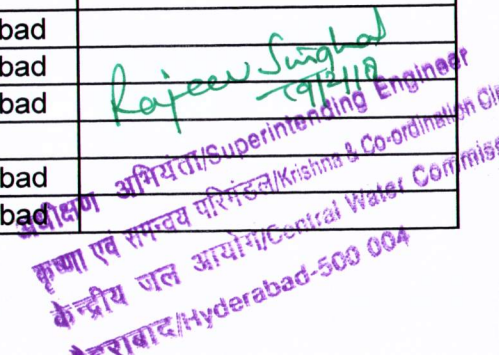 bad
bad
bad
Rajeev Singhal
bad
bad
अधीक्षण अभियंता/Superintending Engineer
कृष्णा एवं समन्वय परिमंडल/Krishna & Co-ordination Cir
केन्द्रीय जल आयोग/Central Water Commiss
हैदराबाद/Hyderabad-500 004